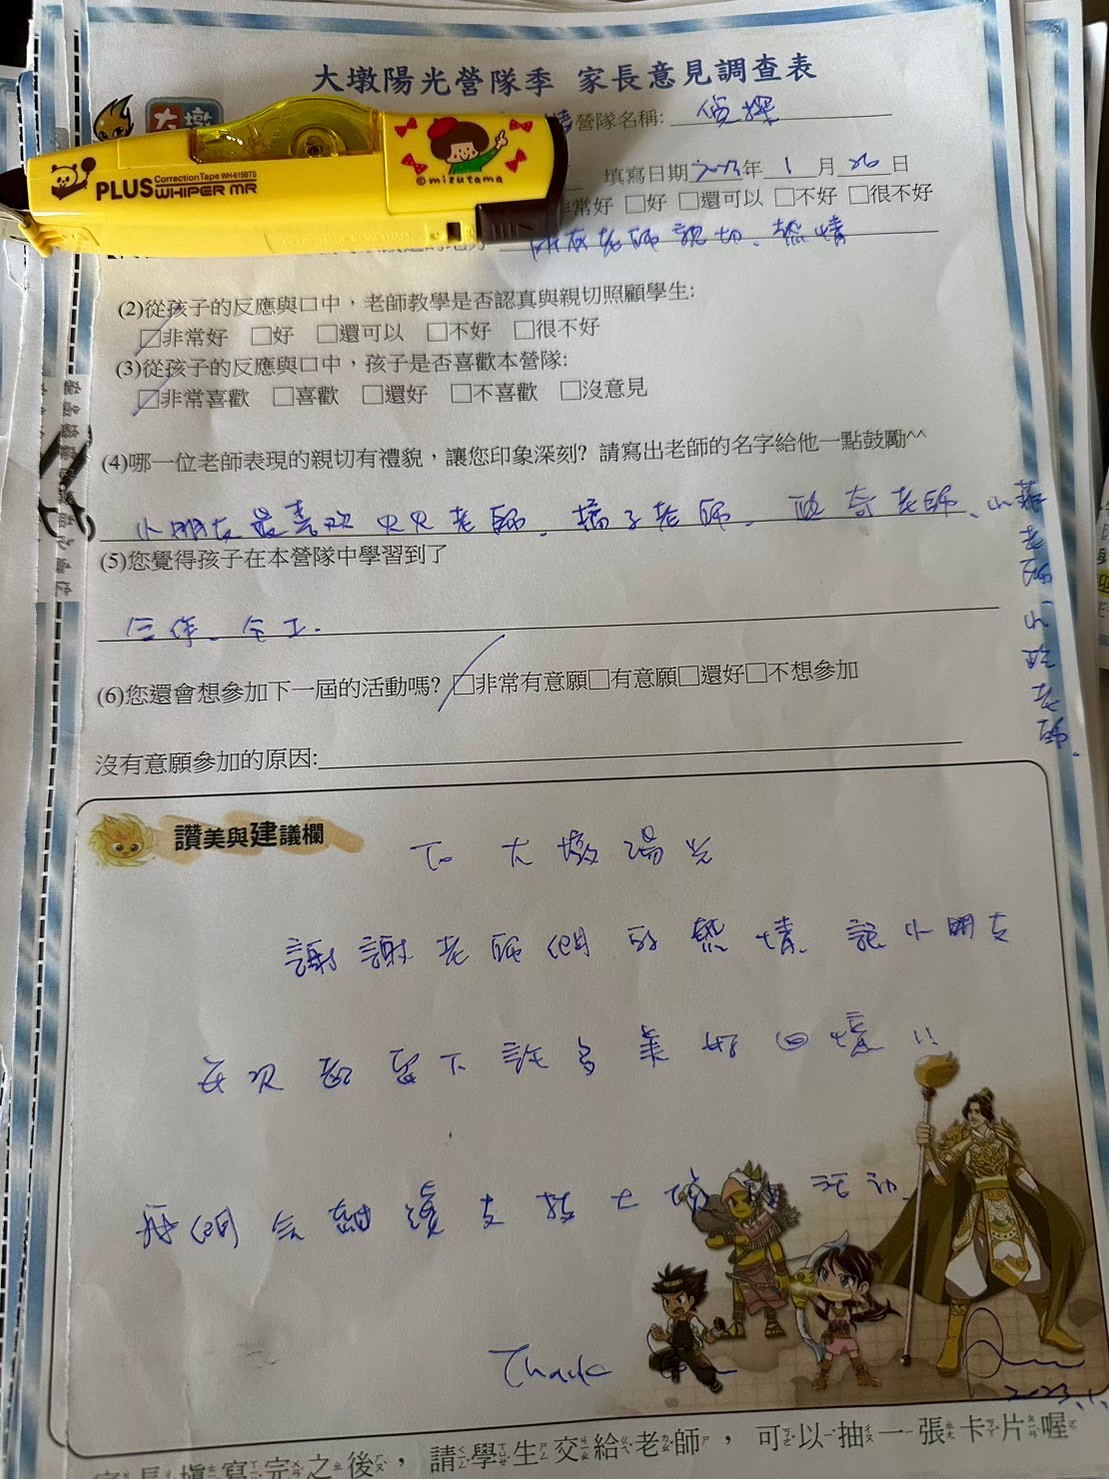 大墩陽光營隊季 家長意見調查表
大墩
營隊名稱: 偵探
填寫日期2023年 1 月 26 日
PLUS CorrectionTape WH-615BTS
WHIPER MR
©mizutama
常好 □好 □還可以 □不好 □很不好
所有老師親切、熱情
(2)從孩子的反應與口中，老師教學是否認真與親切照顧學生:
□非常好 □好 □還可以 □不好 □很不好
(3)從孩子的反應與口中，孩子是否喜歡本營隊:
□非常喜歡 □喜歡 □還好 □不喜歡 □沒意見
(4)哪一位老師表現的親切有禮貌，讓您印象深刻? 請寫出老師的名字給他一點鼓勵^^
小朋友最喜歡 火火老師、橘子老師、 奇老師、小菲老師、小 老師.
(5)您覺得孩子在本營隊中學習到了
合作、分工.
(6)您還會想參加下一屆的活動嗎? □非常有意願□有意願□還好□不想參加
沒有意願參加的原因:
讚美與建議欄
To 大墩陽光
謝謝老師們的熱情 讓小朋友
每次都留下許多美好回憶!!
我們會繼續支持大墩的活動.
Thank
2023.1.
家長填寫完之後，請學生交給老師，可以抽一張卡片喔